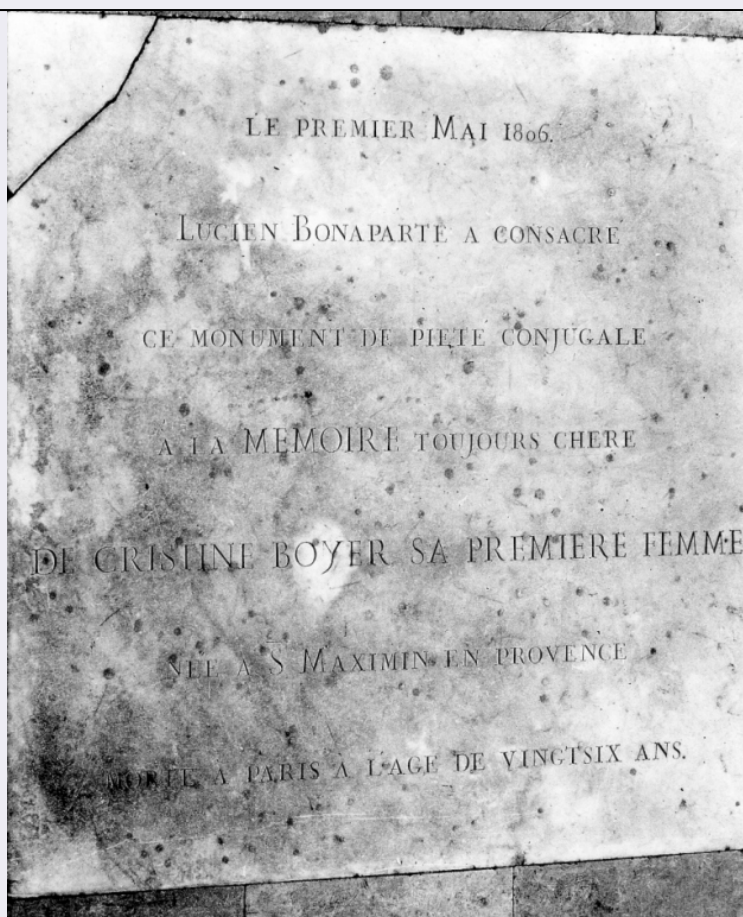 LE PREMIER MAI 1806.
LUCIEN BONAPARTE A CONSACRE
CE MONUMENT DE PIETE CONJUGALE
A LA MEMOIRE TOUJOURS CHERE
DE CRISTINE BOYER SA PREMIERE FEMME
NEE A S MAXIMIN EN PROVENCE
MORTE A PARIS A L'AGE DE VINGTSIX ANS.